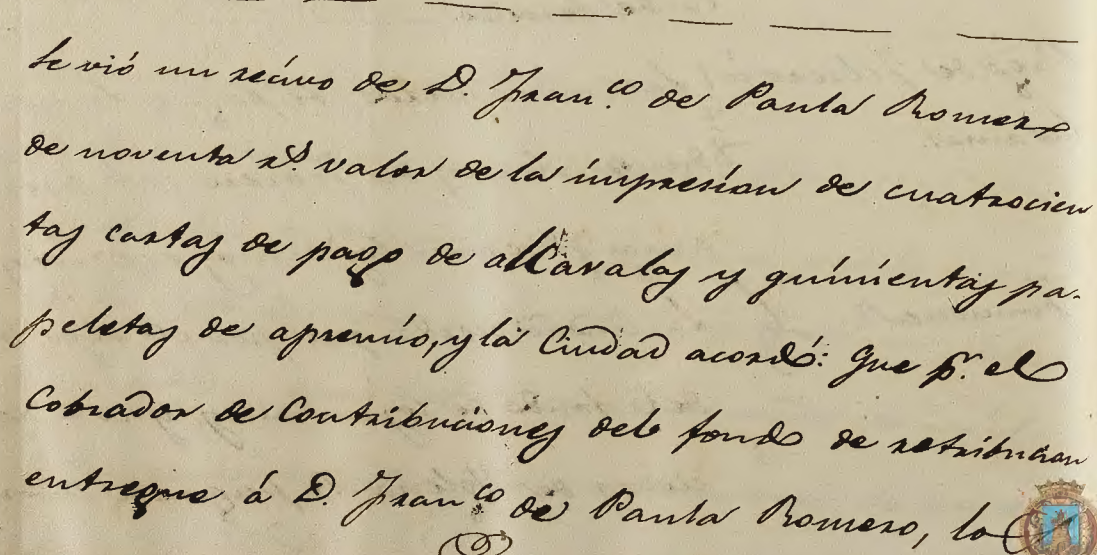 Se vió un recivo de D. Fran.co de Paula Romero
de noventa rs. valor de la impresion de cuatrocien
tas cartas de pago de alcavalas y quinientas pa-
peletas de apremio, y la Ciudad acordó: Que pr. el
Cobrador de Contribuciones del fondo de retribucion
entregue á D. Fran.co de Paula Romero, lo